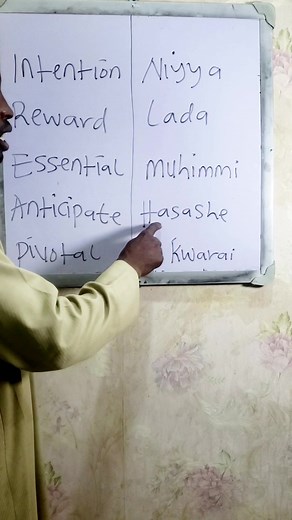 Intention Niyya
Reward Lada
Essential Muhimmi
Anticipate Hasashe
Pivotal Kwarai